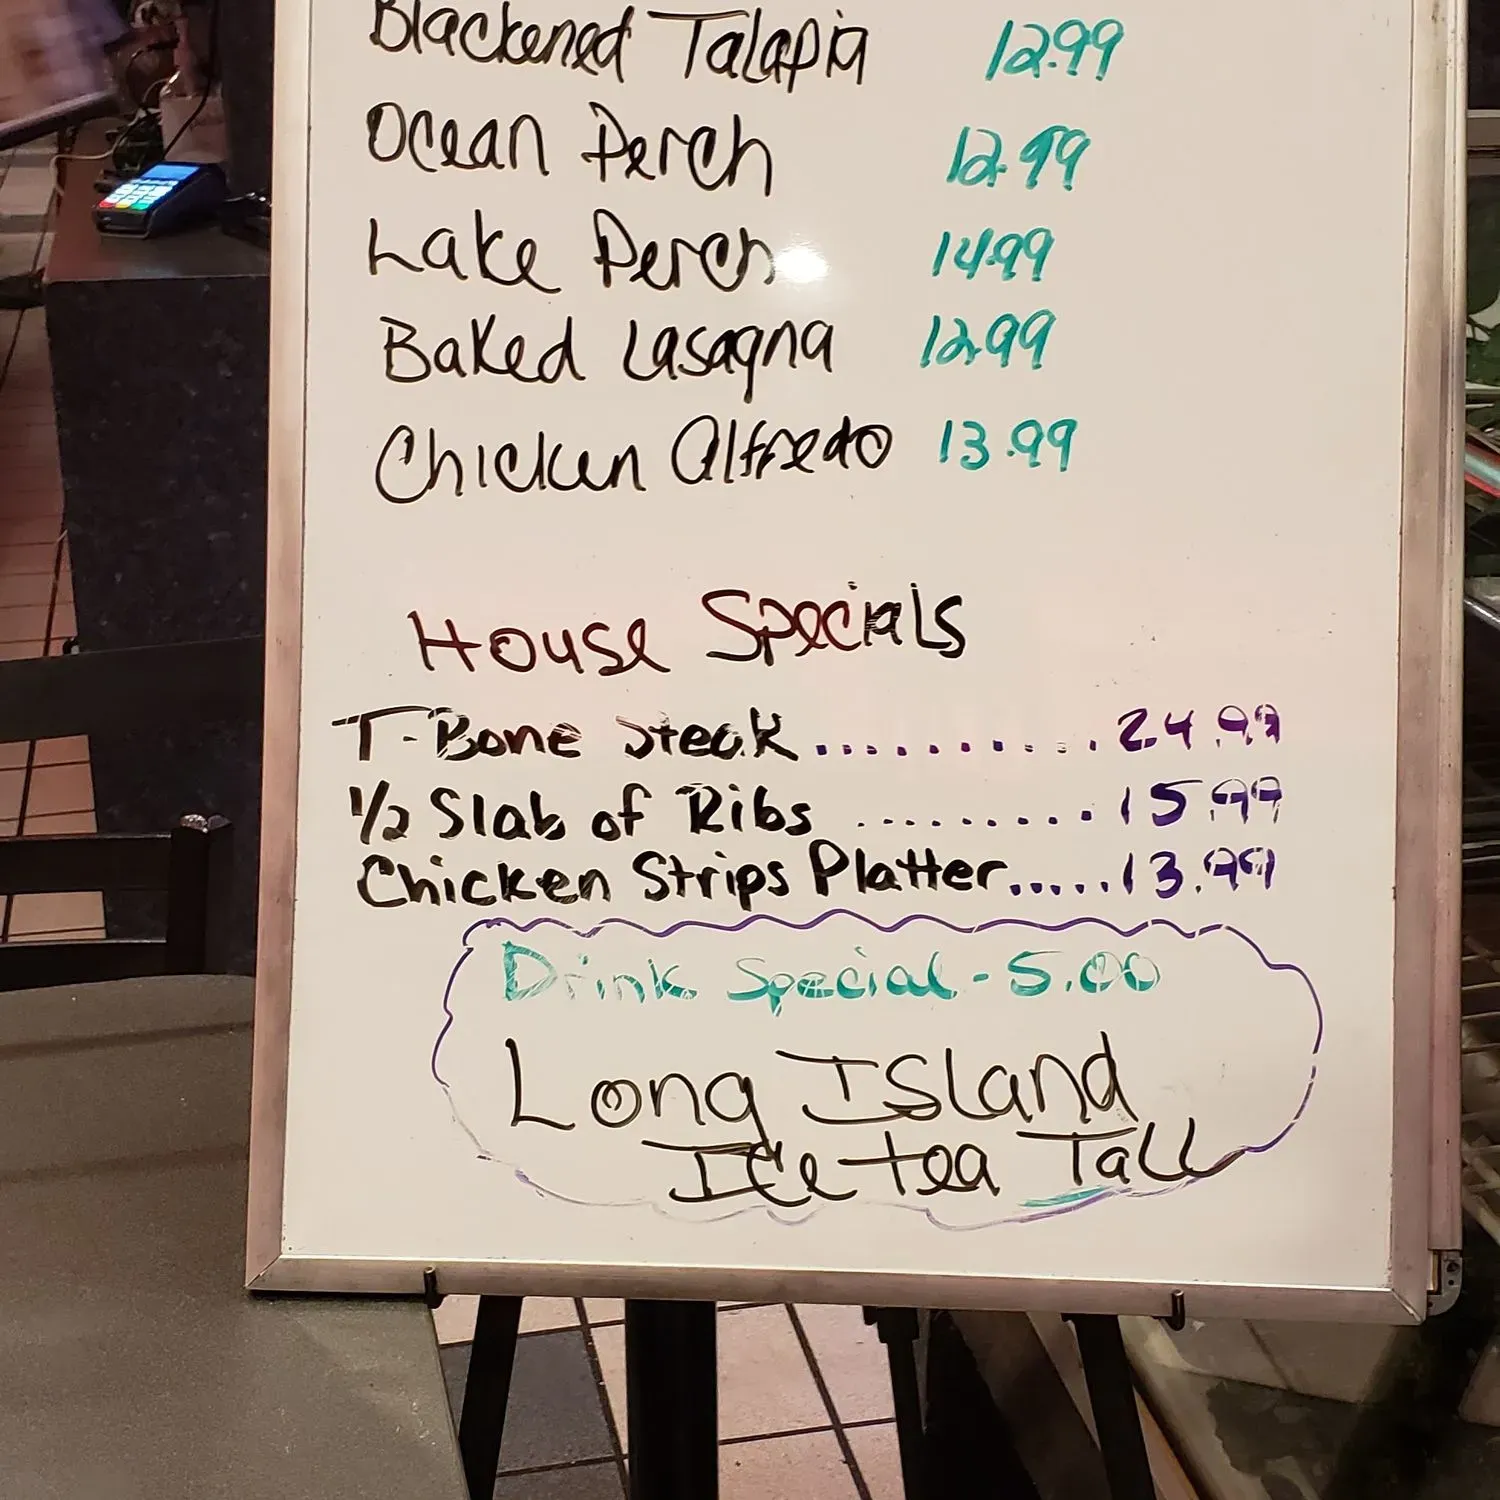 Blackened Talapia 12.99
Ocean Perch 12.99
Lake Perch 14.99
Baked Lasagna 12.99
Chicken Alfredo 13.99
House Specials
T-Bone Steak ........... 24.99
1/2 Slab of Ribs .......... 15.99
Chicken Strips Platter ..... 13.99
Drink Special - 5.00
Long Island
Ice tea Tall